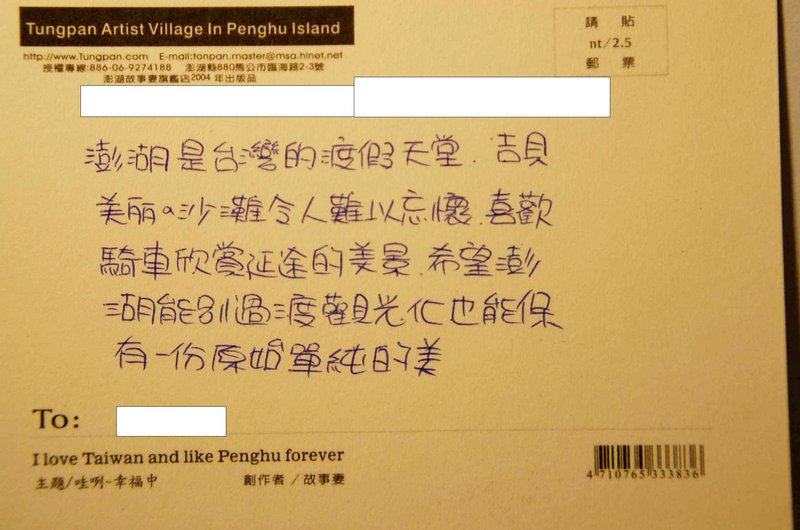 Tungpan Artist Village In Penghu Island
http://www.Tungpan.com E-mail:tonpan.master@msa.hinet.net
授權專線:886-06-9274188 澎湖縣880馬公市臨海路2-3號
澎湖故事妻旗艦店2004 年出版品
請 貼
nt/2.5
郵 票
澎湖是台灣的渡假天堂.吉貝
美丽の沙灘令人難以忘懷.喜歡
騎車欣賞延途的美景.希望澎
湖能別過渡觀光化也能保
有一份原始單純的美
To:
I love Taiwan and like Penghu forever
主題/哇咧~幸福中 創作者/故事妻
4 710765 333836